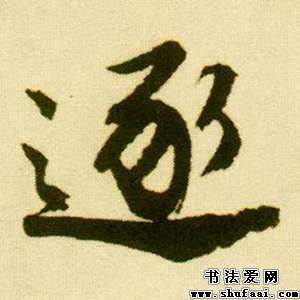 逐
书法爱网
www.shufaai.com